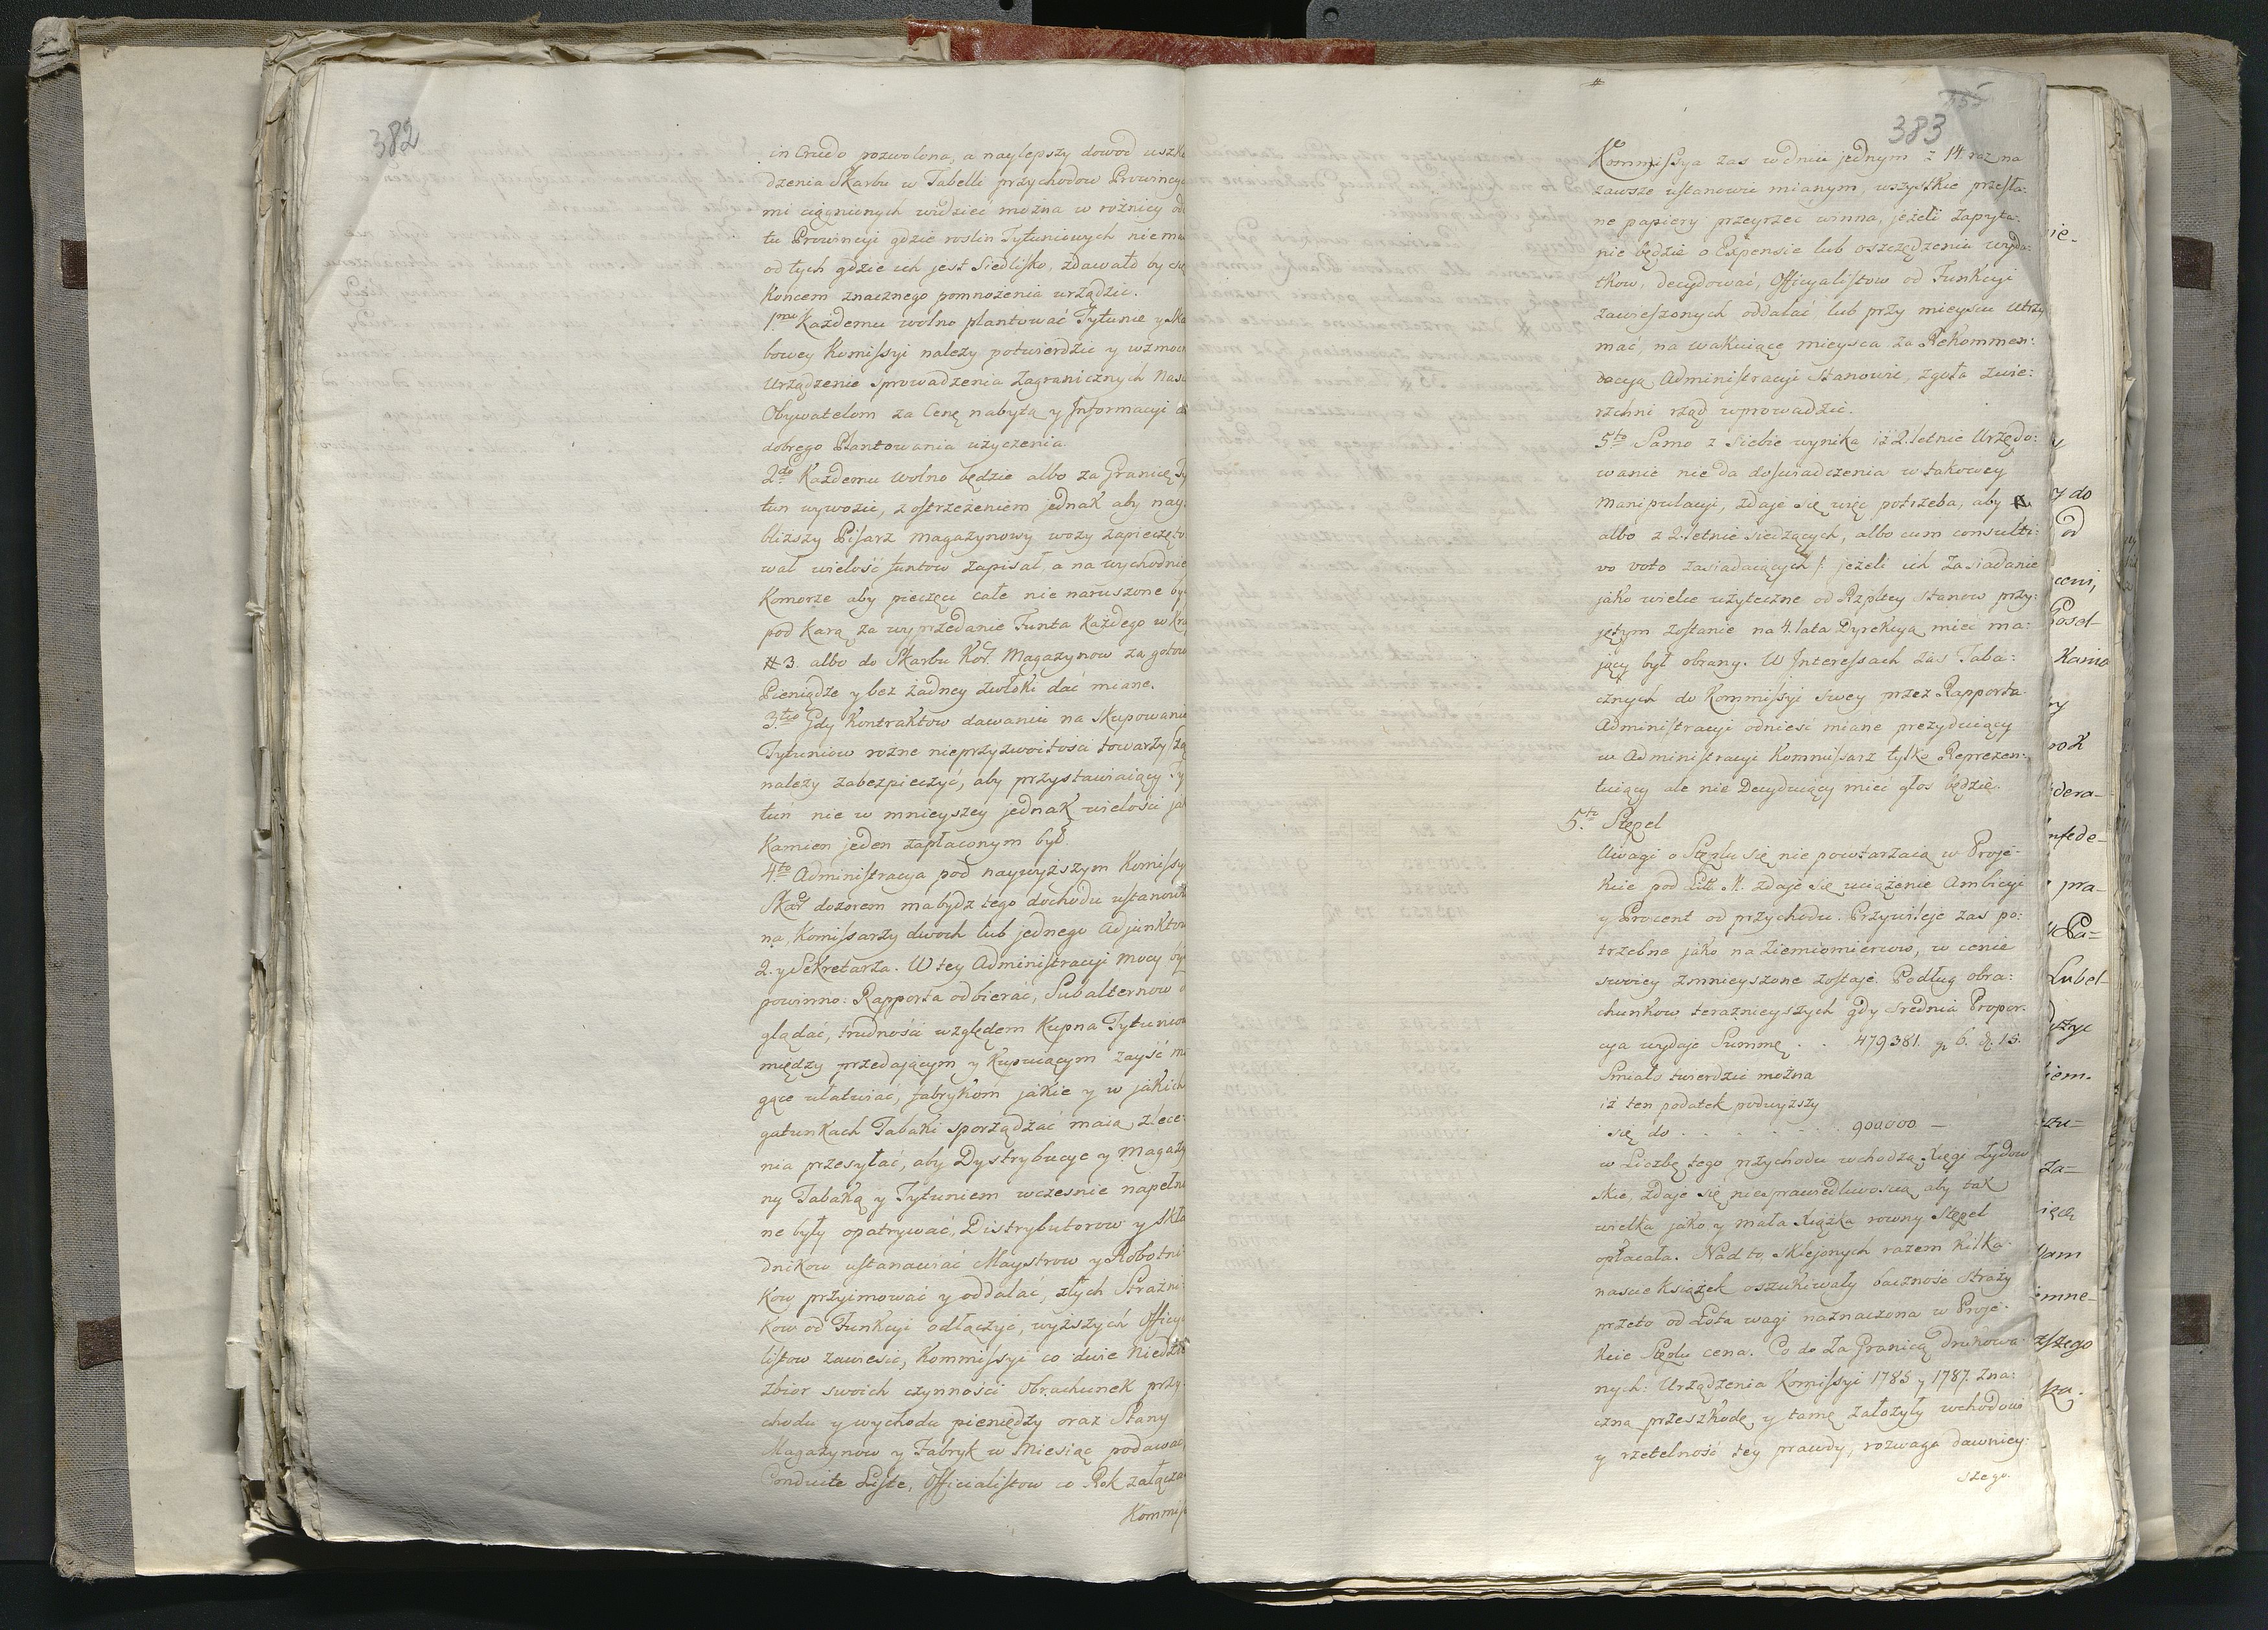 382
in Crudo pozwolona, a naylepszy dowod uszko
dzenia Skarbu w Tabelli przychodow Prowincya
mi ciągnionych widzieć można w rożnicy od
tu Prowincyi gdzie roslin Tytuniowych niema
od tych gdzie ich jest Siedlisko, zdawało by się
Koncem znacznego pomnożenia urządzic.
1mo Każdemu wolno plantować Tytunie y Ska
bowey Komissyi należy potwierdzic y wzmoc
Urządzenie sprowadzenia Zagranicznych Nasi
Obywatelom za Cenę nabytą y Informacyi
dobrego Plantowania użyczenia.
2do Każdemu wolno będzie albo za Granicę Ty
tun wywozic, z ostrzeżeniem jednak aby nay
bliższy Pisarz Magazynowy wozy zapieczęto
wał wielość funtow zapisał, a na wychodnie
Komorze aby pieczęci całe nie naruszone by
pod Karą za wyprzedanie Funta Każdego w Kra
# 3. albo do Skarbu Kor. Magazynow za gotow
Pieniądze y bez żadney zwłoki dać miane.
3tio Gdy Kontraktow dawaniu na skupowanie
Tytuniow rożne nieprzyzwoitości towarzyszą
należy zabezpieczyć, aby przystawiaiący Ty
tuń nie w mnieyszey jednak wielości jak
Kamien jeden zapłaconym był.
4to Administracya pod naywyższym Komissy
Skar dozorem ma bydz tego dochodu ustanowio
na, Komissarzy dwoch lub jednego Adjunktow
2. y Sekretarza. W tey Administracyi mocy by
powinno: Rapporta odbierać, Subalternow
glądać, trudności względem Kupna Tytuniow
między przedającym y Kupuiącym zayść m
gące ułatwiać, fabrykom jakie y w jakich
gatunkach Tabaki sporządzać maią, zlece
nia przesyłać, aby Dystrybucye y Magazy
ny Tabaką y Tytuniem wczesnie napełnio
ne były opatrywać, Distrybutorow y Skła
dnikow ustanawiać Maystrow y Robotni
kow przyimować y oddalać, złych Strażni
kow od Funkcyi odłączyc, wyższych Officya
listow zawiesić, Kommissyi co dwie Niedzie
zbior swoich czynności obrachunek przy
chodu y wychodu pieniędzy oraz Stany
Magazynow y Fabryk w Miesiąc podawać
Conduite Liste, Officialistow co Rok załącza
Kommis
#
155
383
Kommissya zas w dniu jednym z 14. raz na
zawsze ustanowić mianym, wszystkie przesła:
ne papiery przeyrzec winna, jeżeli zapyta:
nie będzie o Expensie lub oszczędzenia wyda:
tkow, decydować, Officyalistow od Funkcyi
zawieszonych oddalać lub przy mieyscu utrzy
mać, na wakuiące mieysca za Rekommen:
dacyą Administracyi Stanowic, zgoła zwie:
rzchni rząd wprowadzic.
5to Samo z siebie wynika iż 2. letnie Urzędo:
wanie nie da doswiadczenia w takowey
Manipulacyi, zdaje się więc potrzeba, aby
albo z 2. letnie siedzących, albo cum consulti:
vo voto zasiadaiących /: jeżeli ich zasiadanie
jako wielce użyteczne od Rzpltey Stanow przy:
jętym zostanie na 4. lata Dyrekcyą mieć ma:
jący był obrany. W Interessach zas Taba:
cznych do Kommissyi swey przez Rapporta
Administracyi odniesć miane prezyduiący
w Administracyi Kommissarz tylko Reprezen:
tuiący ale nie Decyduiący mieć głos będzie.
5to. Stępel
Uwagi o Stęplu się nie powtarzaią w Proje-
kcie pod Litt. M. zdaje się uciążenie Ambicyi
y Procent od przychodu. Przywileje zas po:
trzebne jako na Ziemiomierctwo, w cenie
swoiey zmnieyszone zostaje. Podług obra:
chunkow teraznieyszych gdy srednia Propor.
cya wydaje Summę . . 479381. g. 6. d. 15.
Smiało twierdzić można
iż ten podatek podwyższy
się do . . . . . . 900000 —
w Liczbę tego przychodu wchodzą Xięgi Żydow
skie, zdaje się niesprawiedliwością aby tak
wielka jako y mała Xiążka rowny Stępel
opłacała. Nad to, sklejonych razem kilka
nascie Książek oszukiwały baczność Straży
przeto od Łota wagi naznaczona w Proje-
kcie Stęplu cena. Co do Za Granicą drukowa
nych: Urządzenia Komissyi 1785 y 1787. zna:
czną przeszkodę y tamę założyły wchodowi
y rzetelność tey prawdy, rozwaga dawniey
szego.
y do
od
Kania
idera-
nfede-
pra-
Lubel-
iem.
za-
zszego